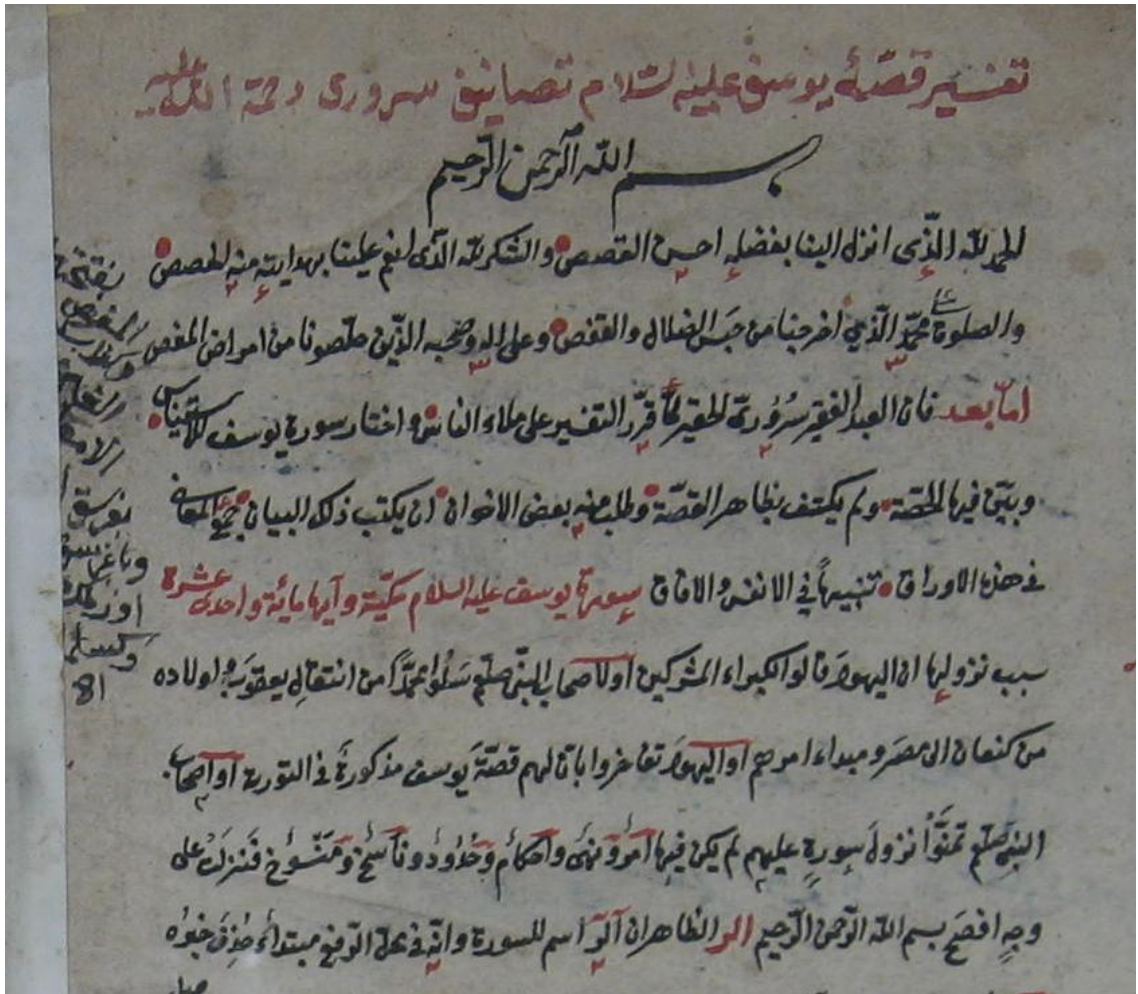 تفسير قصّة يوسف عليه السّلام تصانيف سرورى رحمة الله عليه
بسم الله الرّحمن الرّحيم
الحمد لله الّذى انزل الينا بفضله احسن القصص والشكر لله الّذى انعم علينا بهدايته منه الحصص
والصلوة على محمّد الّذي اخرجنا من حبس الضلال والقفص وعلى اله وصحبه الذين خلّصونا من امراض المغص
امّا بعد فان العبد الفقير سرورىّ الحقير لمّا قرّر التفسير على ملاء النّاس واختار سورة يوسف للاستيناس
وبيّن فيها الحصّة ولم يكتف بظاهر القصّة وطلب منه بعض الاخوان ان يكتب ذلك البيان بجمع المعانى
فى هذه الاوراق تنبيهاً في الانفس والافاق سورة يوسف عليه السلام مكيّة وآيها مائة واحدى عشرة
سبب نزولها ان اليهود قالوا لكبراء المشركين اولاصحاب النبى صلعم سَلُوا محمّدًا من انتقال يعقوب واولاده
من كنعان الى مصر ومبداء امرهم او اليهود تفاخروا بان لهم قصّة يوسف مذكورة فى التورية او اصحاب
النبى صلعم تمنّوا نزول سورةٍ عليهم لم يكن فيها امر ونهى واحكام وحدود وناسخ ومنسوخ فنزلت على
وجه افصح بسم الله الرّحمن الرّحيم الر الظاهر ان آلر اسم للسورة وانّه فى محل الرّفع مبتداء حذف خبره